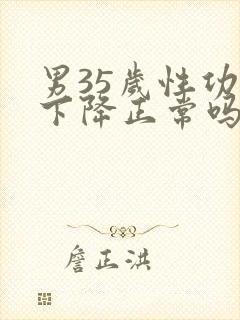 男35岁性功
下降正常吗
詹正洪